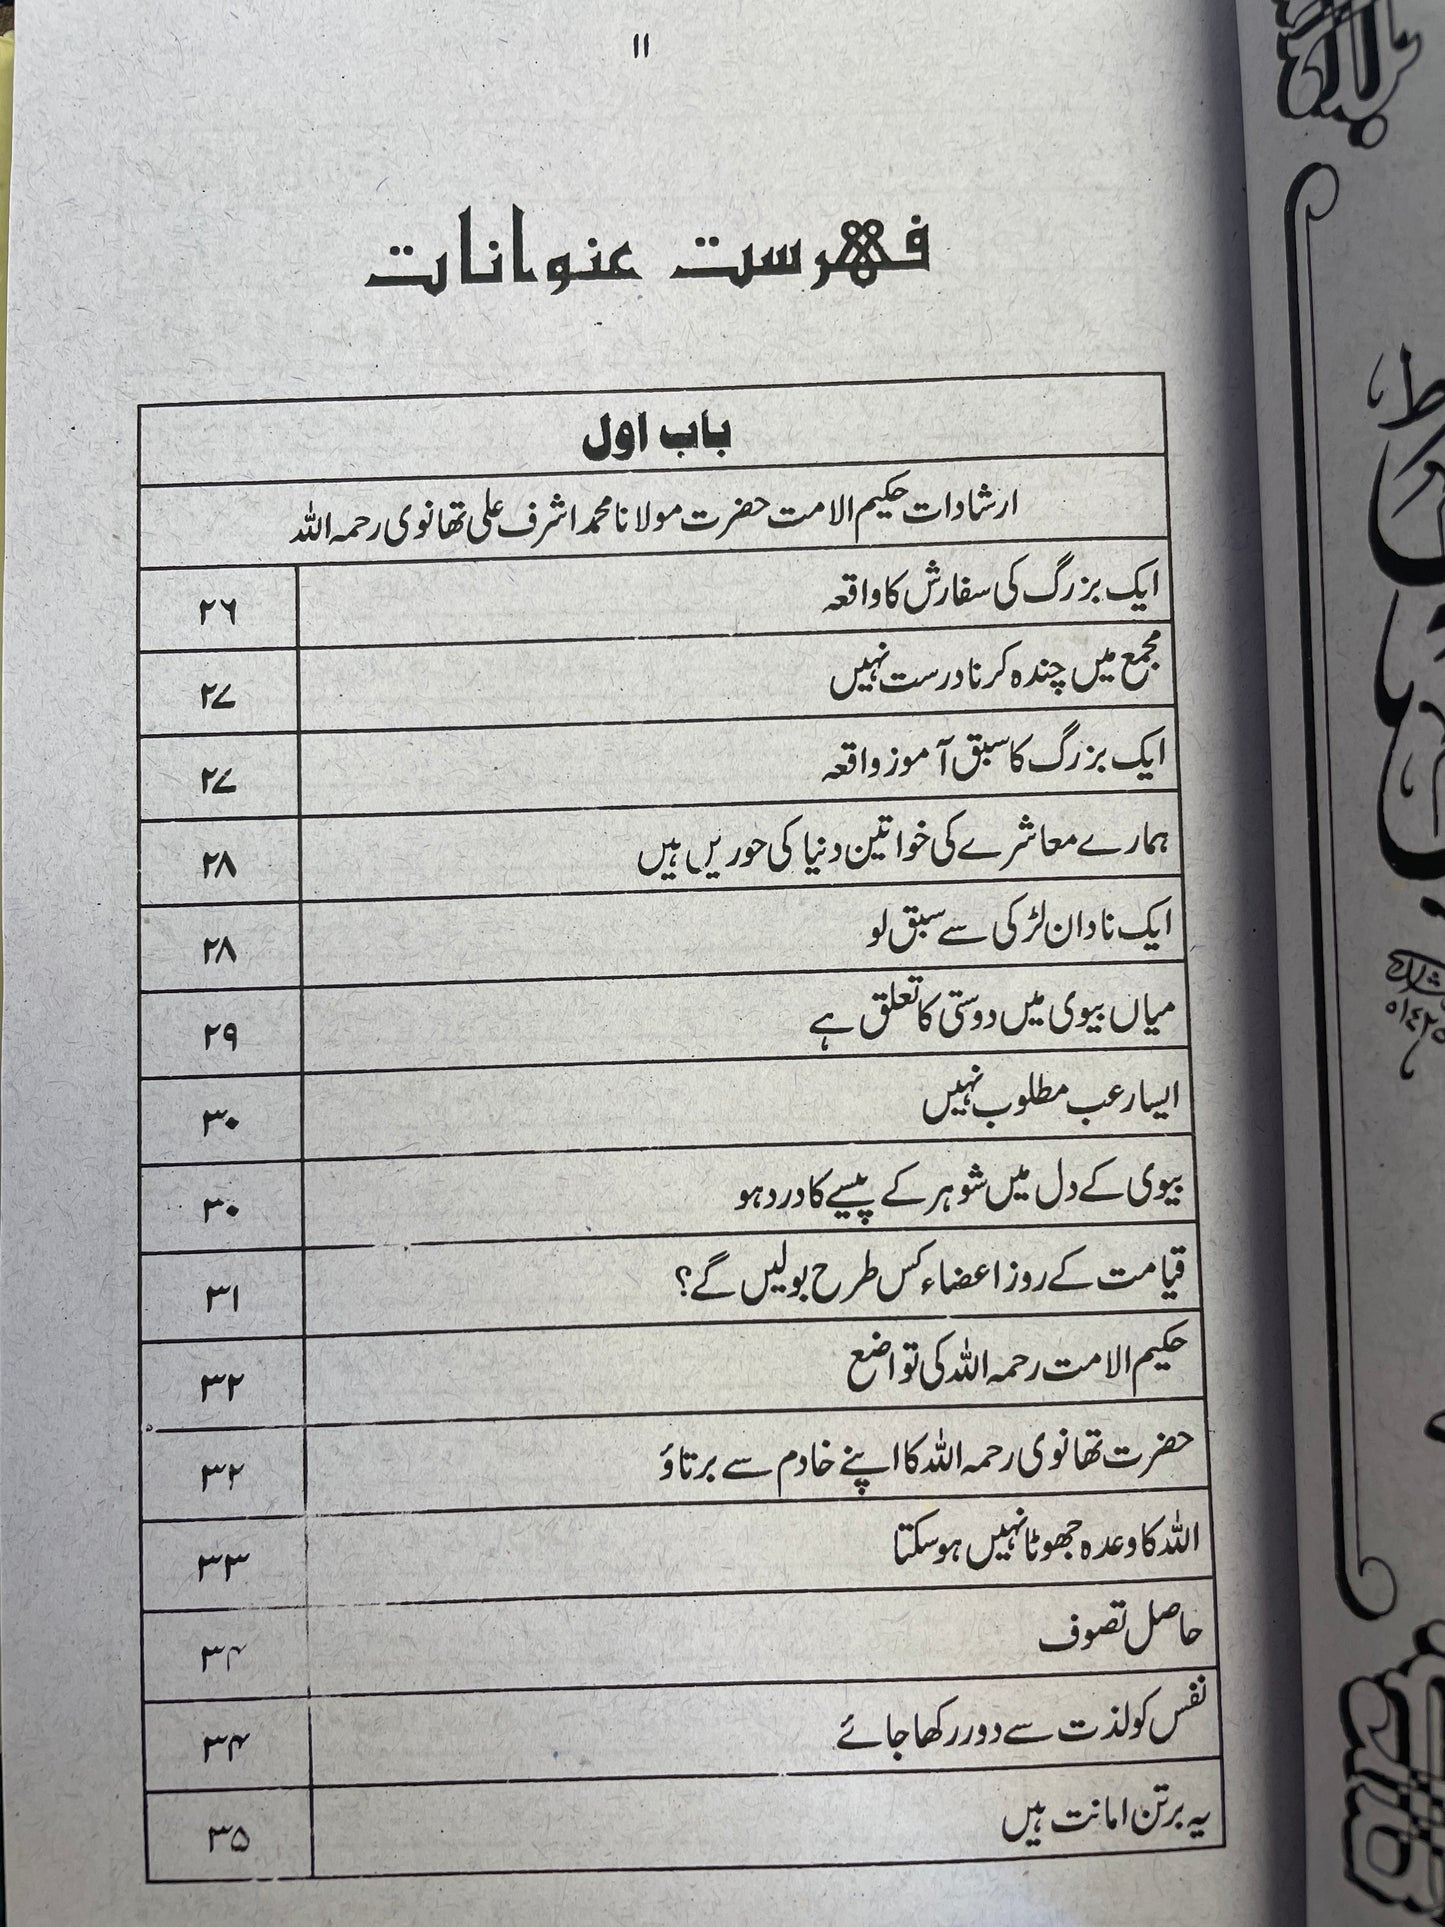 ۱۱
فہرست عنوانات
باب اول
ارشادات حکیم الامت حضرت مولانا محمد اشرف علی تھانوی رحمہ اللہ
ایک بزرگ کی سفارش کا واقعہ ۲۶
مجمع میں چندہ کرنا درست نہیں ۲۷
ایک بزرگ کا سبق آموز واقعہ ۲۷
ہمارے معاشرے کی خواتین دنیا کی حوریں ہیں ۲۸
ایک نادان لڑکی سے سبق لو ۲۸
میاں بیوی میں دوستی کا تعلق ہے ۲۹
ایسا رعب مطلوب نہیں ۳۰
بیوی کے دل میں شوہر کے پیسے کا درد ہو ۳۰
قیامت کے روز اعضاء کس طرح بولیں گے؟ ۳۱
حکیم الامت رحمہ اللہ کی تواضع ۳۲
حضرت تھانوی رحمہ اللہ کا اپنے خادم سے برتاؤ ۳۲
اللہ کا وعدہ جھوٹا نہیں ہو سکتا ۳۳
حاصل تصوف ۳۴
نفس کو لذت سے دور رکھا جائے ۳۴
یہ برتن امانت ہیں ۳۵